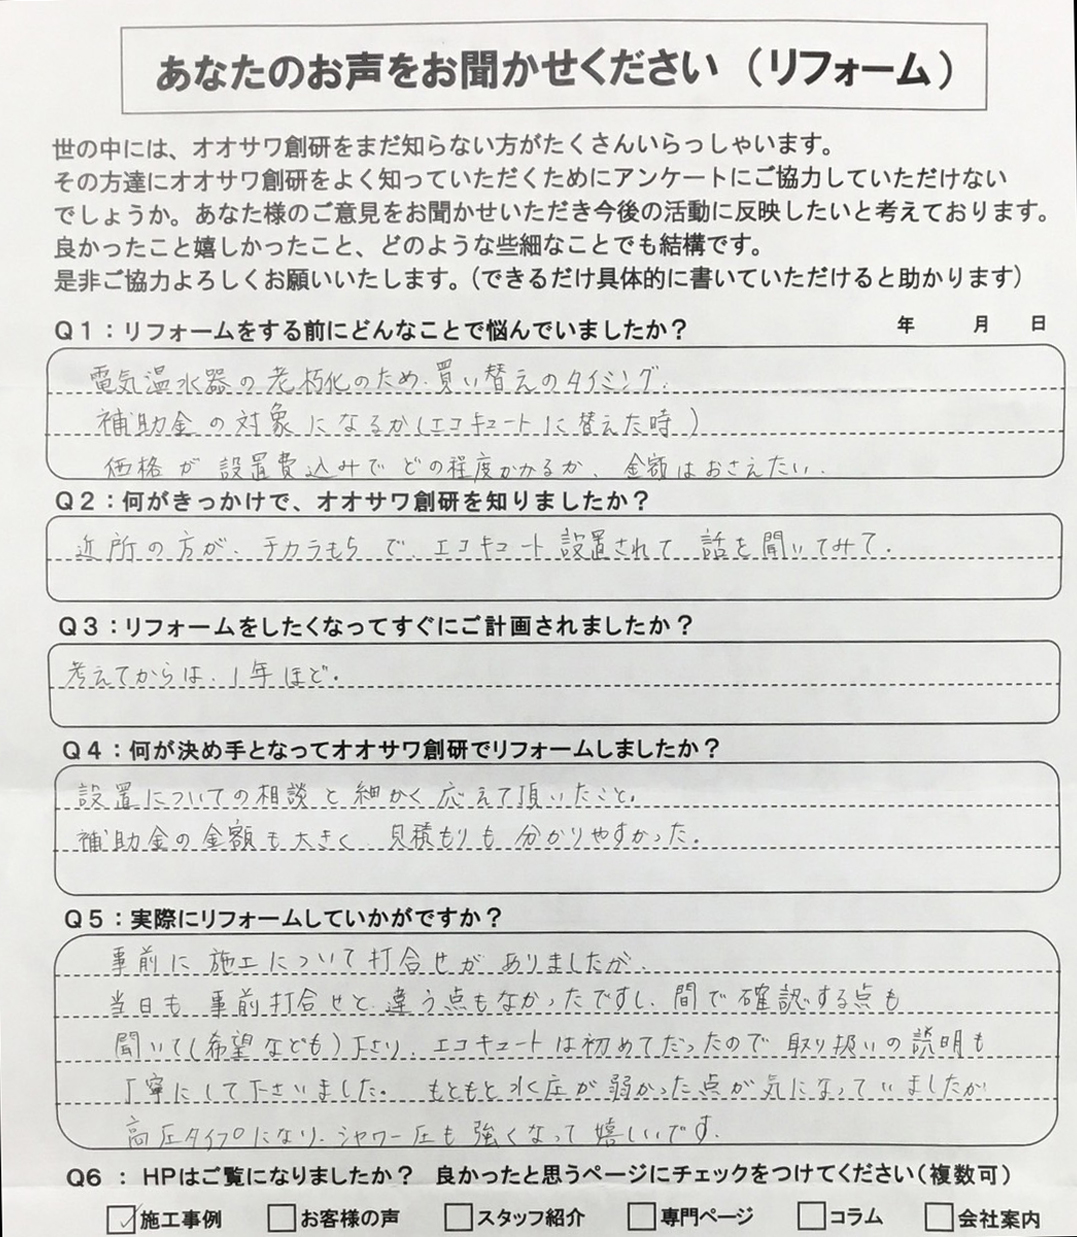 あなたのお声をお聞かせください（リフォーム）
世の中には、オオサワ創研をまだ知らない方がたくさんいらっしゃいます。
その方達にオオサワ創研をよく知っていただくためにアンケートにご協力していただけない
でしょうか。あなた様のご意見をお聞かせいただき今後の活動に反映したいと考えております。
良かったこと嬉しかったこと、どのような些細なことでも結構です。
是非ご協力よろしくお願いいたします。（できるだけ具体的に書いていただけると助かります）
Q1：リフォームをする前にどんなことで悩んでいましたか？ 年 月 日
電気温水器の老朽化のため、買い替えのタイミング.
補助金の対象になるか(エコキュートに替えた時)
価格が設置費込みでどの程度かかるか、金額はおさえたい.
Q2：何がきっかけで、オオサワ創研を知りましたか？
近所の方が、チカラもちで、エコキュート設置されて話を聞いてみて.
Q3：リフォームをしたくなってすぐにご計画されましたか？
考えてからは、1年ほど.
Q4：何が決め手となってオオサワ創研でリフォームしましたか？
設置についての相談と細かく応えて頂いたこと.
補助金の金額も大きく、見積もりも分かりやすかった.
Q5：実際にリフォームしていかがですか？
事前に施工について打合せがありましたが、
当日も事前打合せと違う点もなかったですし、間で確認する点も
聞いて(希望なども)下さり、エコキュートは初めてだったので取り扱いの説明も
丁寧にして下さいました。もともと水圧が弱かった点が気になっていましたが
高圧タイプになり、シャワー圧も強くなって嬉しいです.
Q6 ： HPはご覧になりましたか？ 良かったと思うページにチェックをつけてください（複数可）
☑施工事例 □お客様の声 □スタッフ紹介 □専門ページ □コラム □会社案内